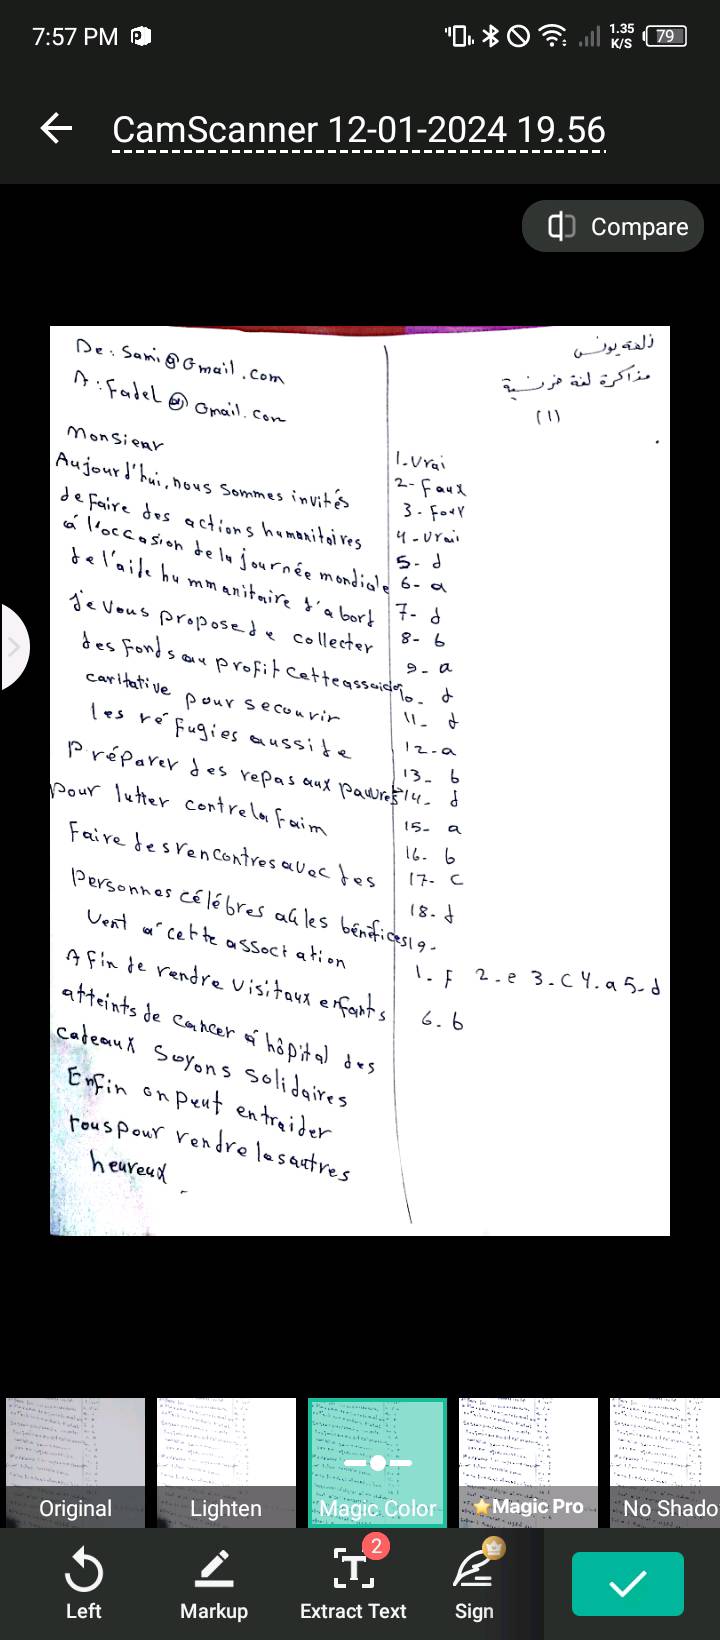 7:57 PM
1.35 K/S
79
CamScanner 12-01-2024 19.56
Compare
De : Sami@Gmail.com
A : Fadel@Gmail.com
Monsieur
Aujourd'hui, nous sommes invités
de faire des actions humanitaires
á l'occasion de la journée mondiale
de l'aide hummanitaire d'abord
je vous propose de collecter
des fonds au profit cette
caritative pour secourir
les réfugies aussi de
Préparer des repas aux pauvres
pour lutter contre la faim
Faire des rencontres avec des
Personnes célébres les bénéfices
vent á cette association
A fin de rendre visitaux enfants
atteints de cancer á hôpital des
cadeaux Soyons solidaires
Enfin on peut entraider
tous pour rendre les autres
heureux.
مذاكرة لغة فرنسية
(١)
1-Vrai
2- Faux
3- Faux
4-Vrai
5- d
6- a
7- d
8- b
9- a
10- d
11- d
12-a
13- b
14- d
15- a
16- b
17- c
18- d
19-
1-F 2-e 3-C 4-a 5-d
6-b
Original
Lighten
Magic Color
Magic Pro
No Shado
Left
Markup
2
Extract Text
Sign